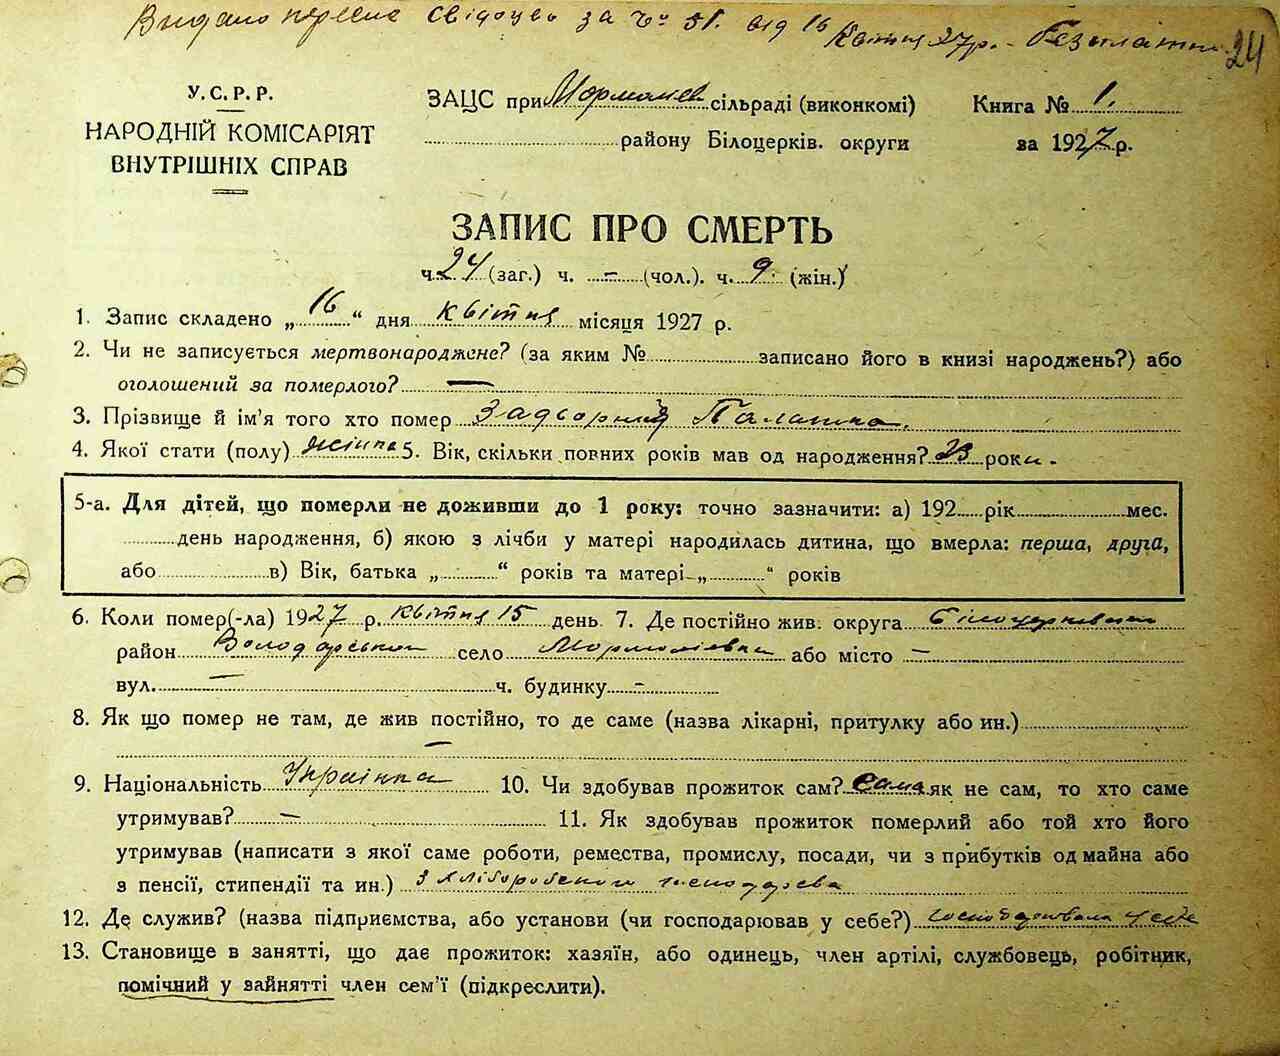 Видано первісне свідоцтво за ч. 51. від 16 Квітня 27 р. - безплатно
24
У.С.Р.Р.
НАРОДНІЙ КОМІСАРІЯТ
ВНУТРІШНІХ СПРАВ
ЗАЦС при Мормолів сільраді (виконкомі)
району Білоцерків. округи
Книга № 1.
за 1927 р.
ЗАПИС ПРО СМЕРТЬ
ч. 24 (заг.) ч. – (чол.). ч. 9. (жін.)
1. Запис складено „16“ дня Квітня місяця 1927 р.
2. Чи не записується мертвонароджене? (за яким № записано його в книзі народжень?) або
оголошений за померлого? —
3. Прізвище й ім'я того хто помер Задворний
4. Якої стати (полу) жінка 5. Вік, скільки повних років мав од народження? 23 роки.
5-а. Для дітей, що померли не доживши до 1 року: точно зазначити: а) 192 рік мес.
день народження, б) якою з лічби у матері народилась дитина, що вмерла: перша, друга,
або в) Вік, батька „ “ років та матері „ “ років
6. Коли помер(-ла) 1927 р. Квітня 15 день 7. Де постійно жив: округа Білоцерківська
район Володарський село Мормоліївка або місто –
вул. – ч. будинку –
8. Як що помер не там, де жив постійно, то де саме (назва лікарні, притулку або ин.)
–
9. Національність Українка 10. Чи здобував прожиток сам? сама як не сам, то хто саме
утримував? – 11. Як здобував прожиток померлий або той хто його
утримував (написати з якої саме роботи, ремества, промислу, посади, чи з прибутків од майна або
з пенсії, стипендії та ин.) З хліборобського господарства
12. Де служив? (назва підприємства, або установи (чи господарював у себе?) господарювала у себе
13. Становище в занятті, що дає прожиток: хазяїн, або одинець, член артілі, службовець, робітник,
помічний у зайнятті член сем'ї (підкреслити).